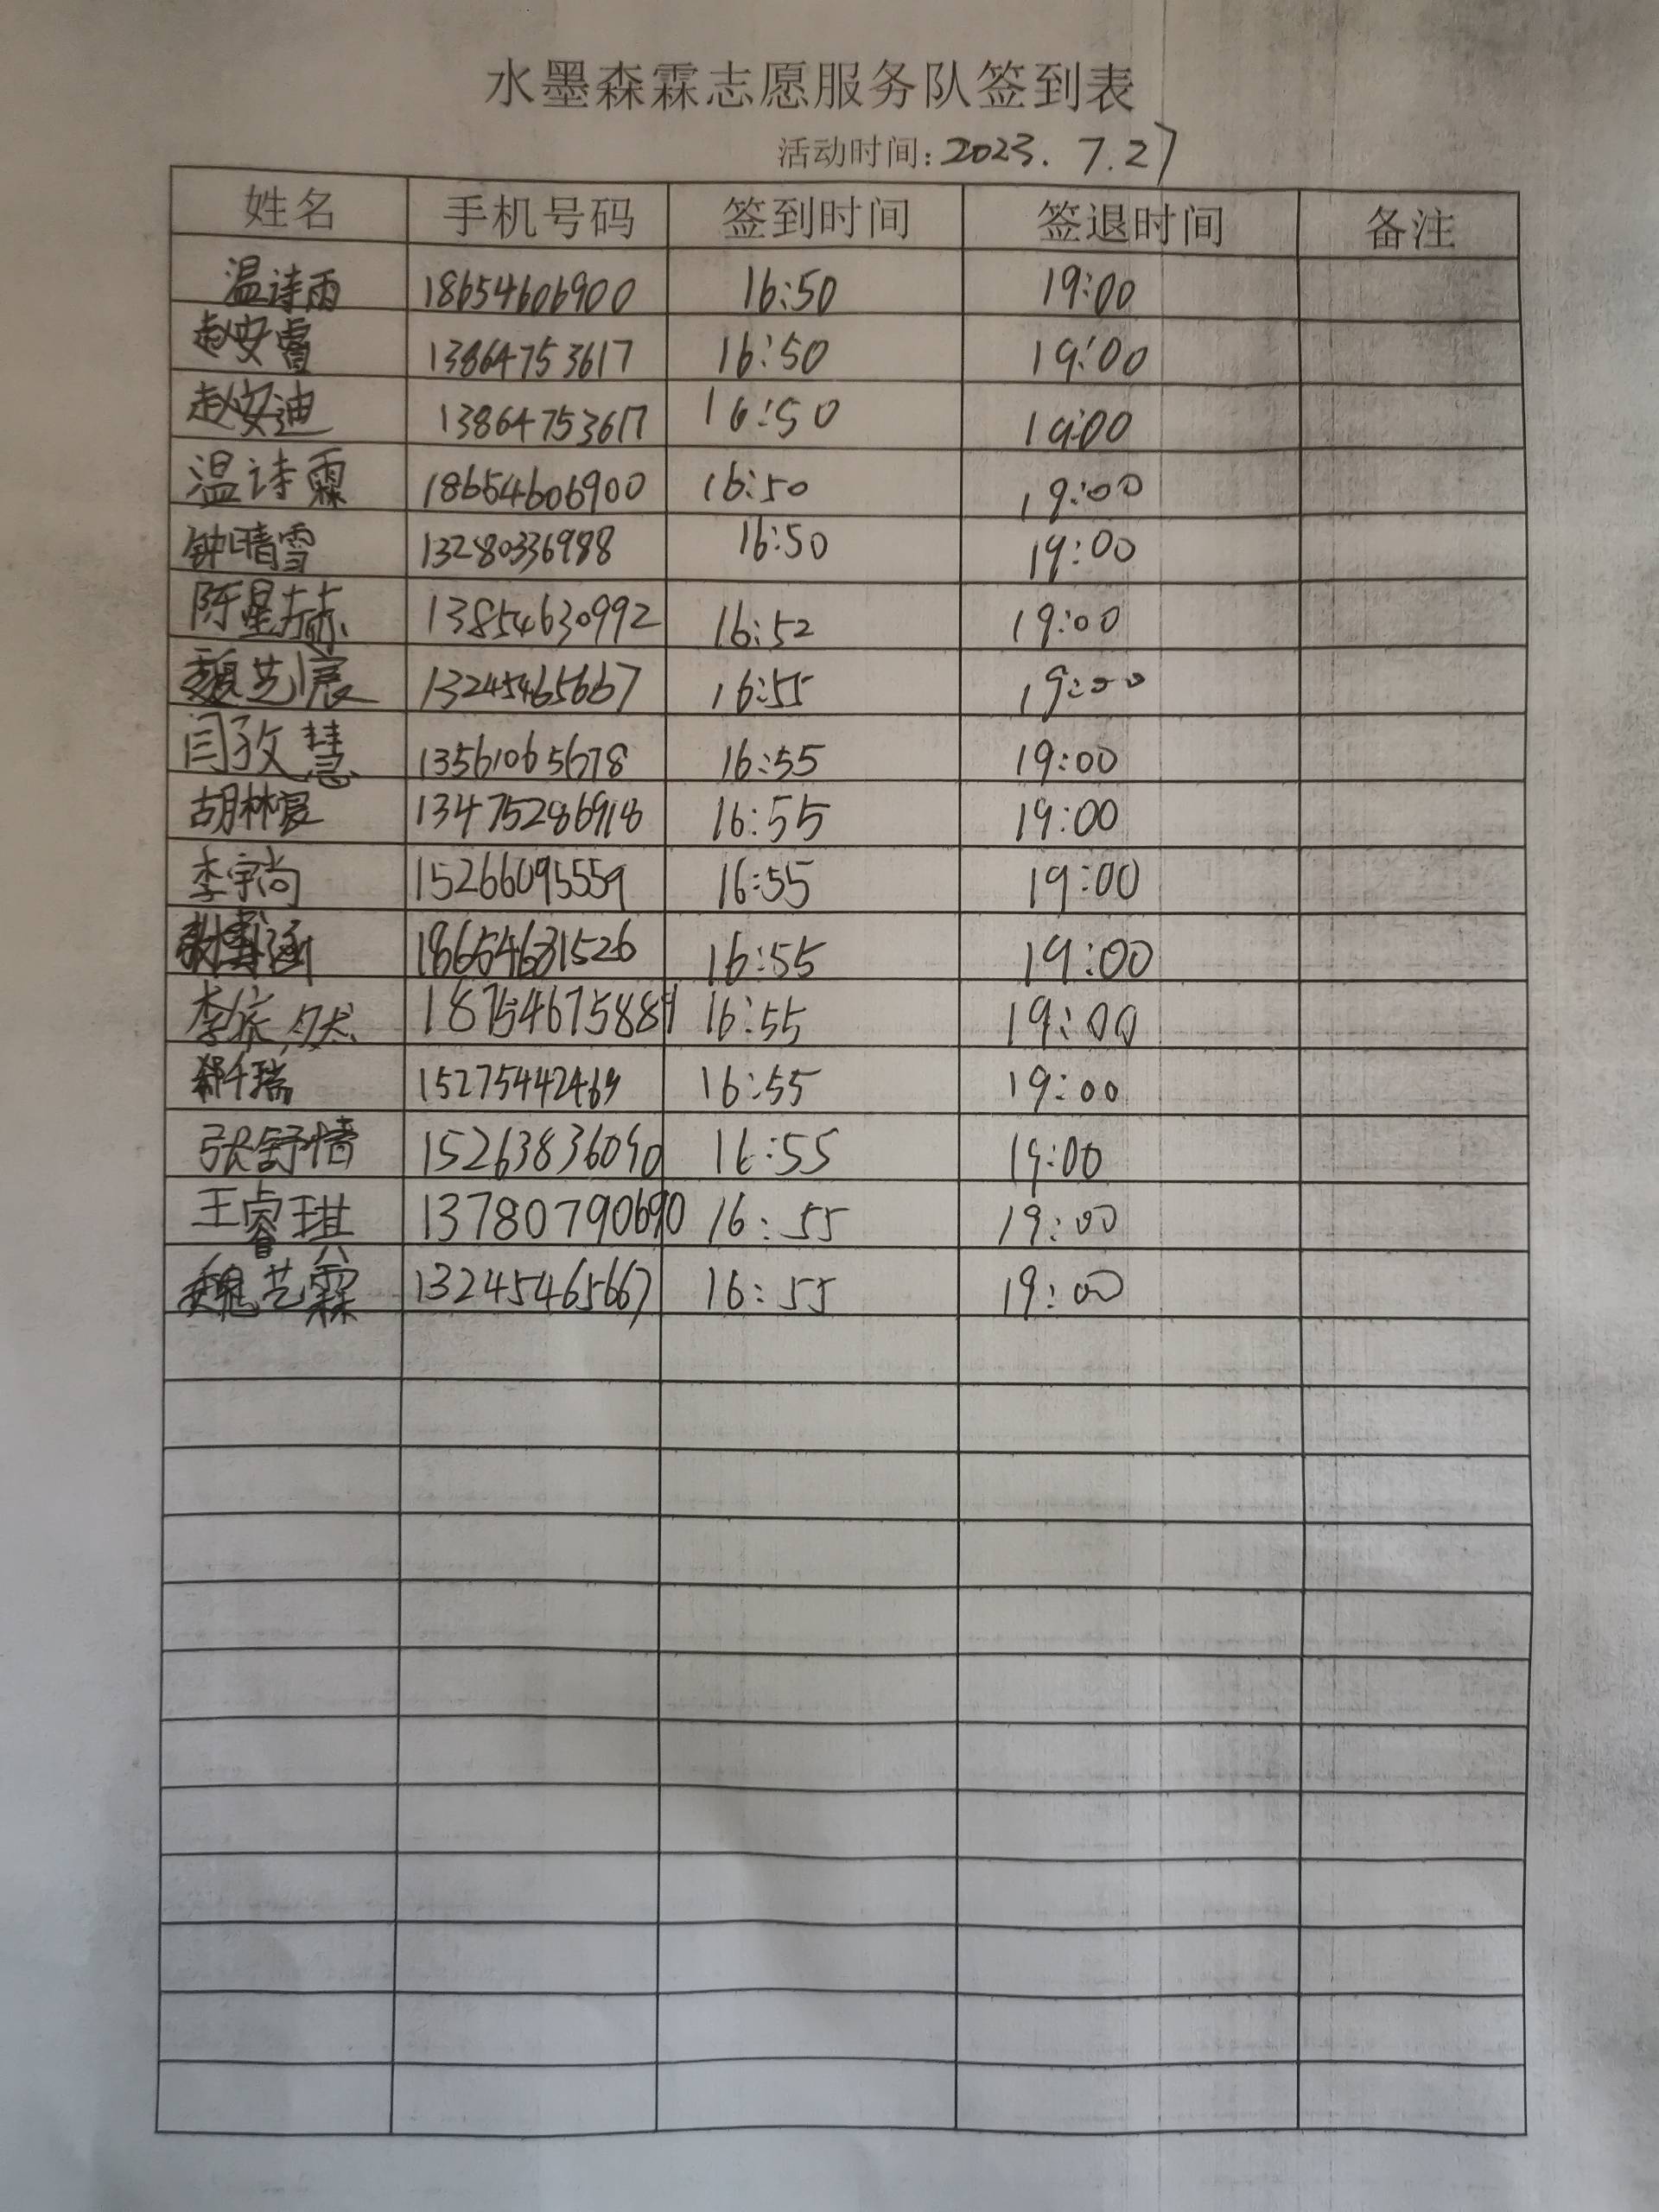 水墨森霖志愿服务队签到表
活动时间:2023.7.27
姓名 手机号码 签到时间 签退时间 备注
温诗雨 18654606900 16:50 19:00
赵安睿 13864753617 16:50 19:00
赵安迪 13864753617 16:50 19:00
温诗霖 18654606900 16:50 19:00
钟晴雪 13280336988 16:50 19:00
陈星赫 13854630992 16:52 19:00
魏艺宸 13245465667 16:55 19:00
闫孜慧 13561065678 16:55 19:00
胡林宸 13475286918 16:55 19:00
李宇尚 15266095559 16:55 19:00
18654631526 16:55 19:00
李依然 18754675889 16:55 19:00
千瑞 16:55 19:00
张舒惜 15263836090 16:55 19:00
王睿琪 13780790690 16:55 19:00
魏艺霖 13245465667 16:55 19:00